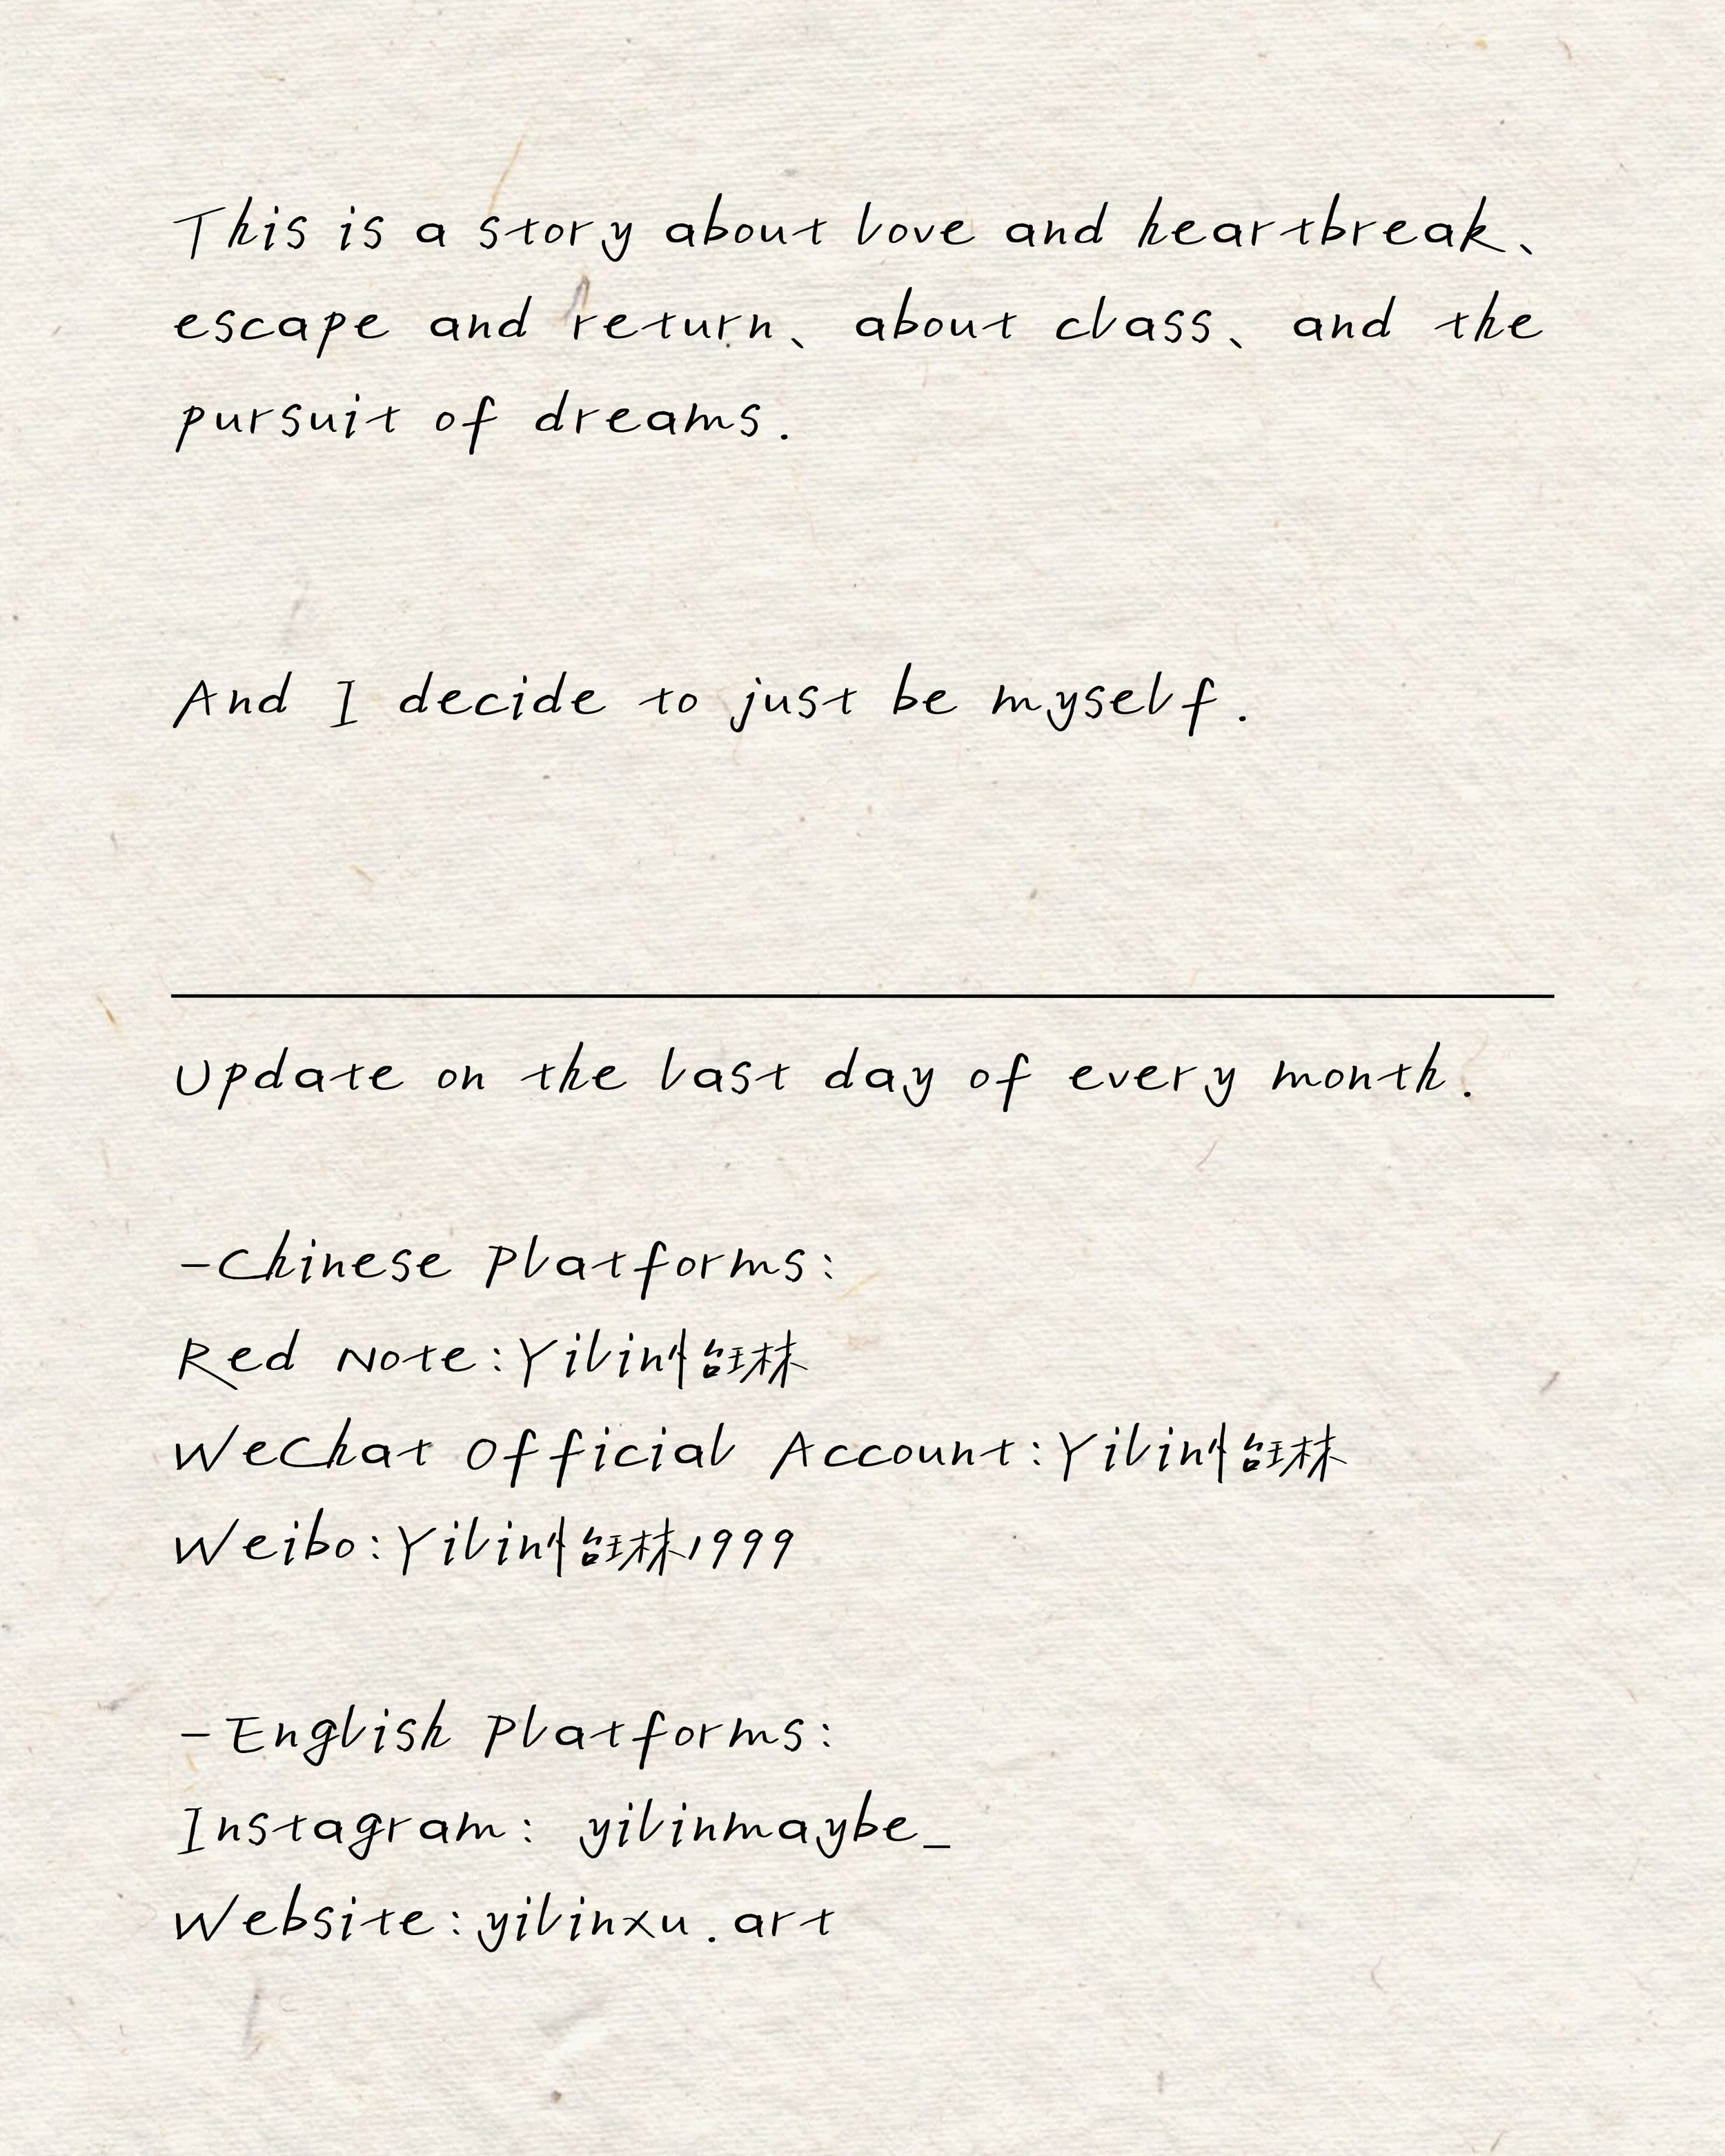 This is a story about love and heartbreak、
escape and return、 about class、 and the
pursuit of dreams.
And I decide to just be myself.
Update on the last day of every month.
-Chinese Platforms:
Red Note:Yilin怡玨林
WeChat Official Account:Yilin怡玨林
Weibo:Yilin怡玨林1999
-English Platforms:
Instagram: yilinmaybe_
Website:yilinxu.art